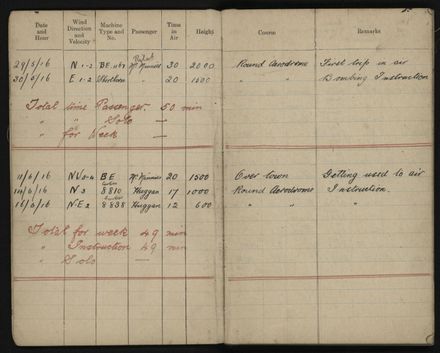 Date and Hour | Wind Direction and Velocity | Machine Type and No. | Passenger | Time in Air | Height | Course | Remarks
29/5/16 | N 1-2 | BE 1167 | 30 | 2000 | Round Aerodrome | First trip in air
30/5/16 | E 1-2 | Shorthorn | " | 20 | 1500 | " " | Bombing Instruction
Total time Passenger. 50 min
" " Solo —
" for Week —
11/6/16 | BE | 20 | 1500 | Over town | Getting used to air
14/6/16 | N 3 | 8810 | Huggan | 17 | 1000 | Round Aerodrome | Instruction.
N.E 2 | 8838 | Huggan | 12 | 600 | " " | "
Total for week 49 min
" Instruction 49 min
" Solo —